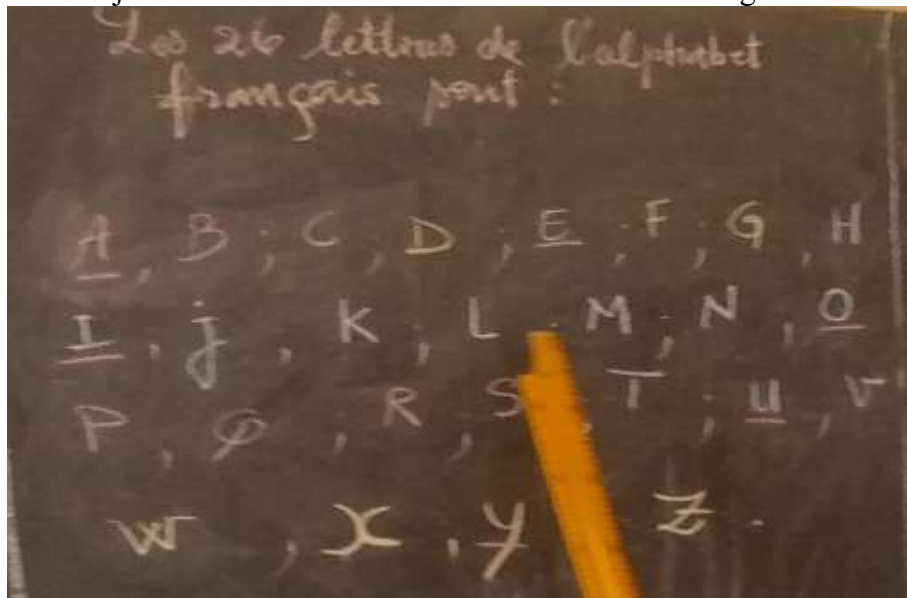 Les 26 lettres de l'alphabet
français sont :
A , B ; C , D ; E ; F ; G , H
I , j , K ; L ; M ; N , O
P , Q ; R ; S , T ; U , V
W , X , Y Z .